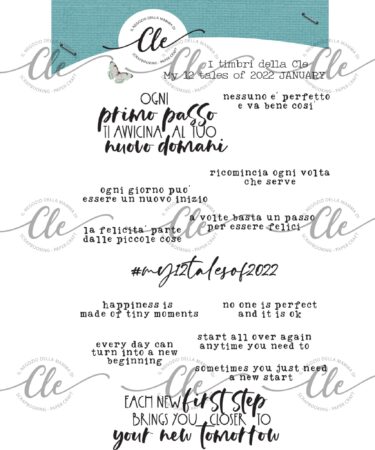 IL NEGOZIO DELLA MAMMA DI
Cle
SCRAPBOOKING - PAPER CRAFT
I timbri della Cle
My 12 tales of 2022 JANUARY
OGNI
primo passo
TI AVVICINA AL TUO
nuovo domani
nessuno e' perfetto
e va bene cosi'
ricomincia ogni volta
che serve
ogni giorno puo'
essere un nuovo inizio
a volte basta un passo
per essere felici
la felicita' parte
dalle piccole cose
#my12talesof2022
happiness is
made of tiny moments
no one is perfect
and it is ok
start all over again
anytime you need to
every day can
turn into a new
beginning
sometimes you just need
a new start
EACH NEW first step
BRINGS YOU CLOSER TO
your new tomorrow